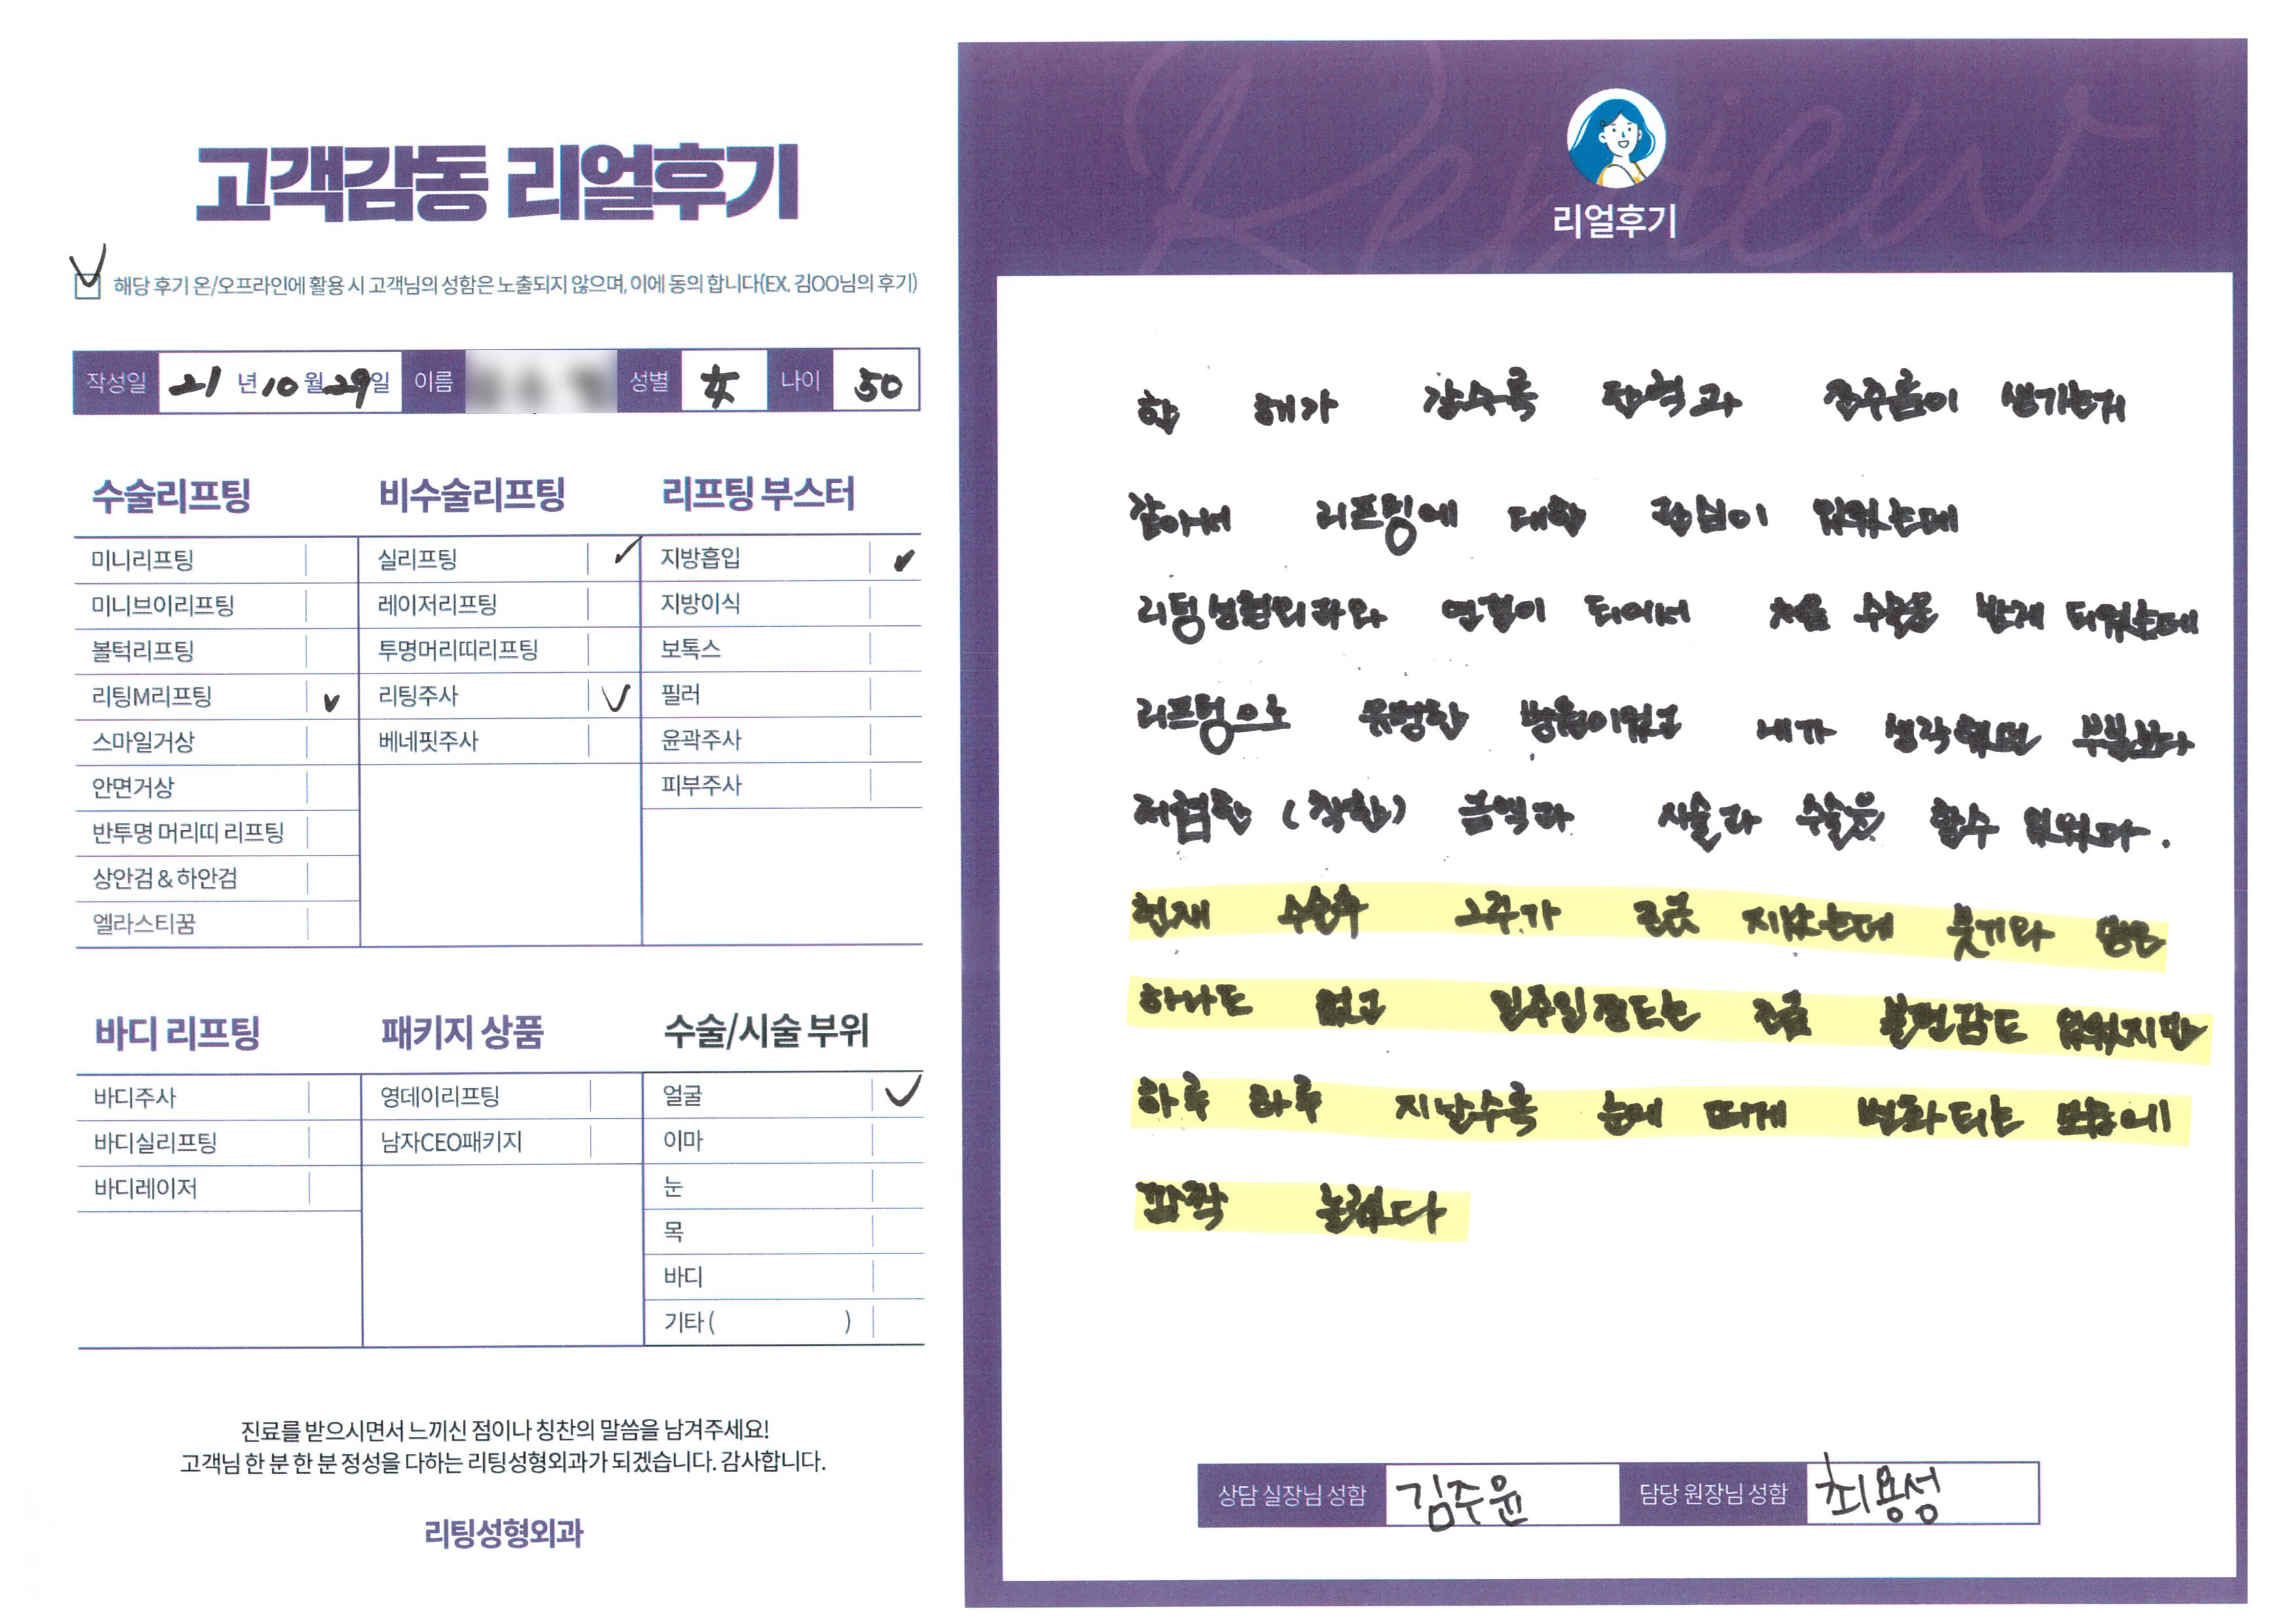 고객감동 리얼후기
해당 후기 온/오프라인에 활용 시 고객님의 성함은 노출되지 않으며, 이에 동의 합니다(EX. 김OO님의 후기)
작성일 21 년 10 월 29 일 이름 성별 女 나이 50
수술리프팅
미니리프팅
미니브이리프팅
볼턱리프팅
리팅M리프팅
스마일거상
안면거상
반투명 머리띠 리프팅
상안검 & 하안검
엘라스티꿈
비수술리프팅
실리프팅
레이저리프팅
투명머리띠리프팅
리팅주사
베네핏주사
리프팅 부스터
지방흡입
지방이식
보톡스
필러
윤곽주사
피부주사
바디 리프팅
바디주사
바디실리프팅
바디레이저
패키지 상품
영데이리프팅
남자CEO패키지
수술/시술 부위
얼굴
이마
눈
목
바디
기타 ( )
진료를 받으시면서 느끼신 점이나 칭찬의 말씀을 남겨주세요!
고객님 한 분 한 분 정성을 다하는 리팅성형외과가 되겠습니다. 감사합니다.
리팅성형외과
Review
리얼후기
한 해가 갈수록 탄력과 잔주름이 생기는거
같아서 리프팅에 대한 관심이 있었는데
리팅성형외과와 연결이 되어서 처음 수술을 받게 되었는데
리프팅으로 유명한 병원이었고 내가 생각했던 부분보다
저렴한 (착한) 금액과 시술과 수술을 할수 있었다.
현재 수술후 2주가 조금 지났는데 붓기와 멍은
하나도 없고 일주일정도는 조금 불편감도 있었지만
하루 하루 지날수록 눈에 띄게 변화되는 모습에
깜짝 놀랬다
상담 실장님 성함 김주윤 담당 원장님 성함 최용성